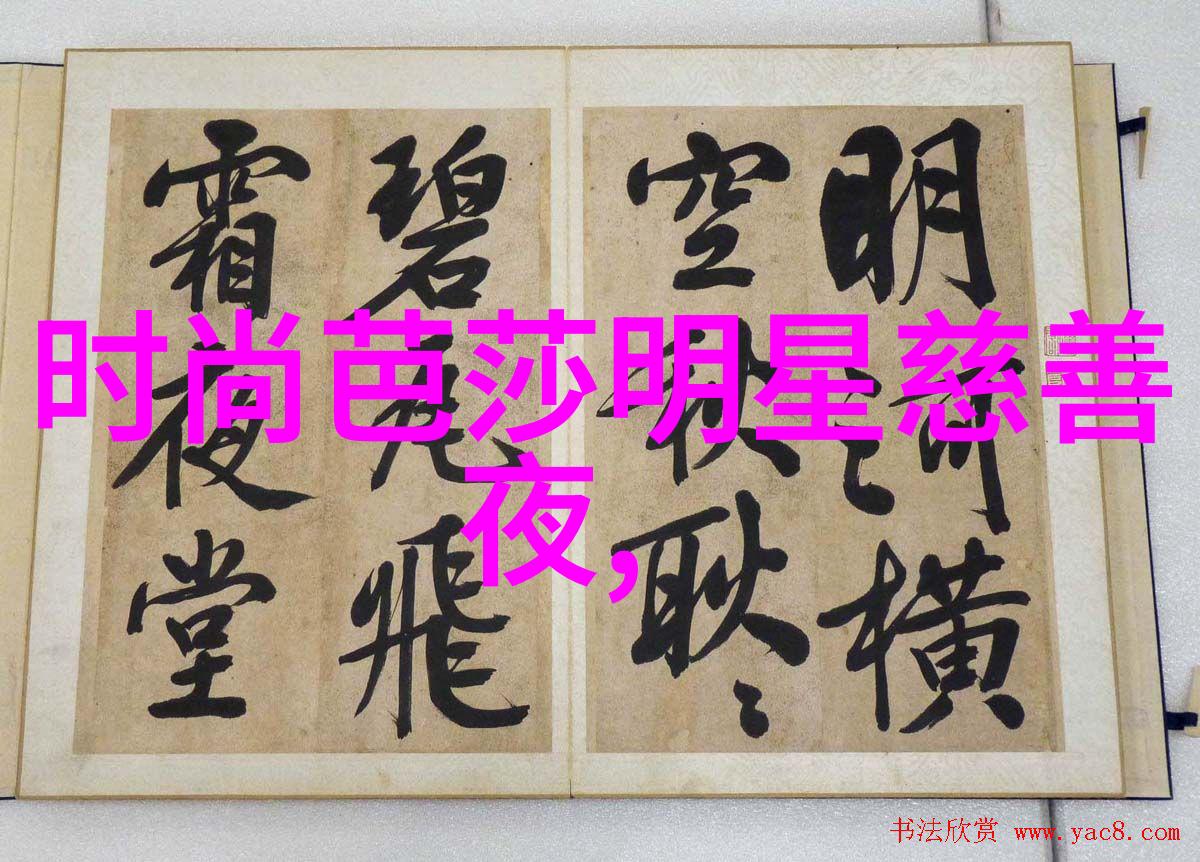 时尚芭莎明星慈善
夜,
明河横
空秋耿〻
碧瓦飛
霜夜堂
书法欣赏 www.yac8.com